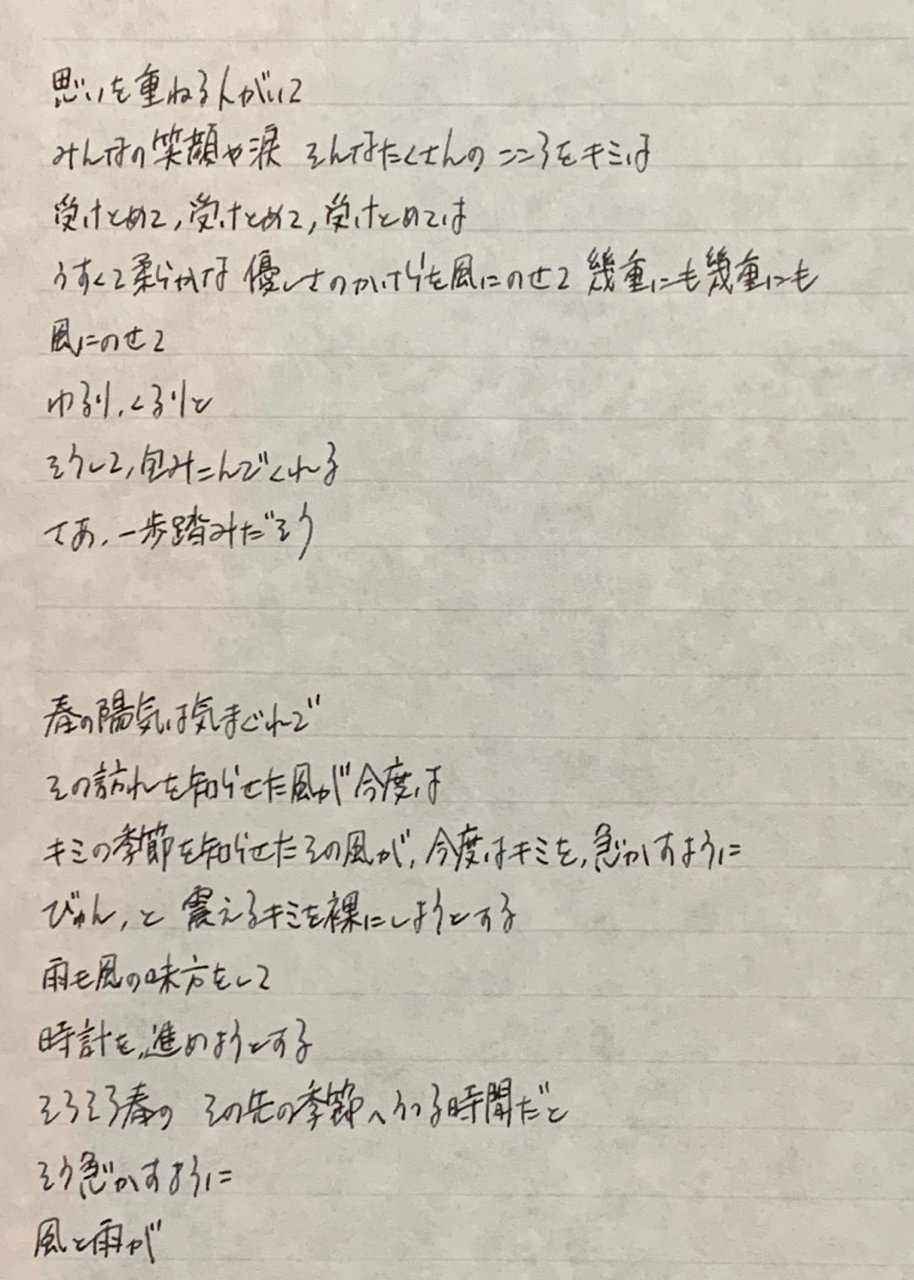 思いを重ねる人がいて
みんなの笑顔や涙 そんなたくさんの こころをキミは
受けとめて,受けとめて,受けとめては
うすくて柔らかな 優しさのかけらを風にのせて 幾重にも幾重にも
風にのせて
ゆるり,くるりと
そうして,包みこんでくれる
さあ,一歩踏みだそう
春の陽気は気まぐれで
その訪れを知らせた風が今度は
キミの季節を知らせたその風が,今度はキミを,急かすように
びゅん,と 震えるキミを裸にしようとする
雨も風の味方をして
時計を,進めようとする
そろそろ春の その先の季節へうつる時間だと
そう急かすように
風と雨が